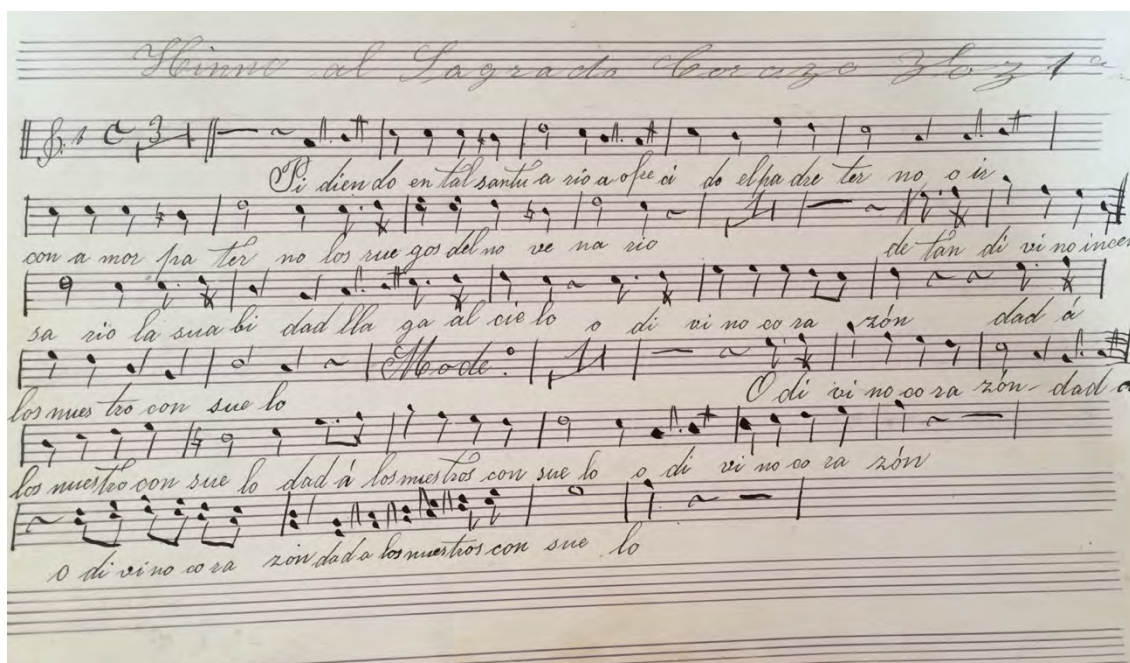 Himno al Sagrado Corazo Voz 1ª
3
Pi dien do en tal santu a rio a ofre ci do el pa dre ter no o ir
con a mor pa ter no los rue gos del no ve na rio de tan di vi no incen
sa rio la sua bi dad lla ga al cie lo o di vi no co ra zón dad á
Mode:
los nues tro con sue lo O di vi no co ra zón dad a
los nuestro con sue lo dad á los nuestros con sue lo o di vi no co ra zón
o di vi no co ra zón dad a los nuestros con sue lo